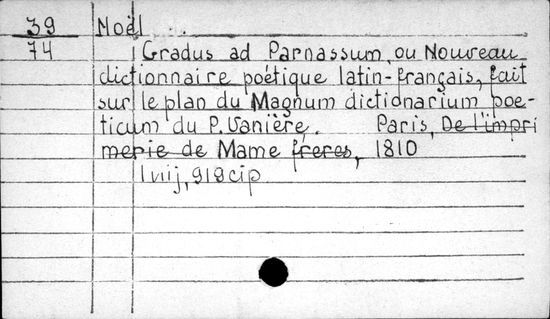 39 Noël
74 Gradus ad Parnassum, ou Nouveau
dictionnaire poétique latin-français, fait
sur le plan du Magnum dictionarium poe-
ticum du P. Vanière. Paris, De l'impri
merie de Mame freres, 1810
lviij, 919 cip